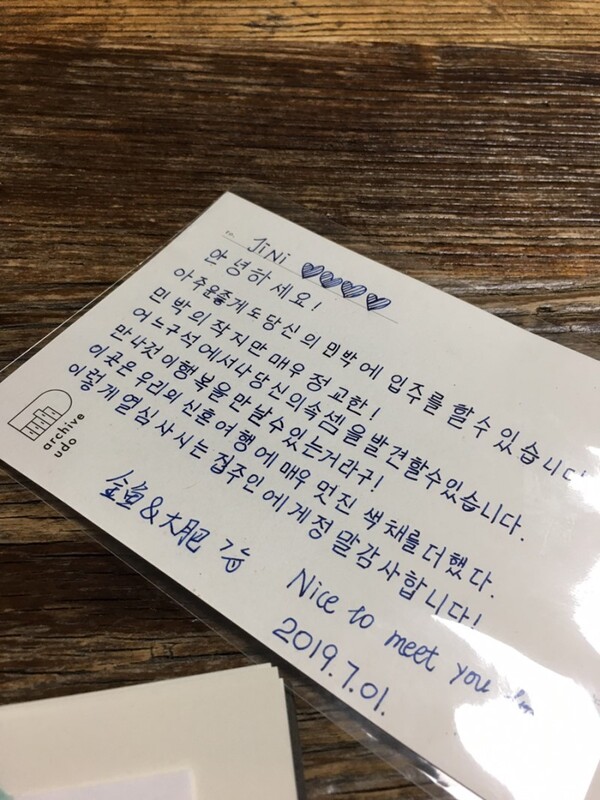 TO.
JiNi ♥♥♥♥
안녕하세요!
아주운좋게도당신의민박에 입주를 할수 있습니다
민박의 작지만 매우 정교한!
어느구석에서나당신의속셈을발견할수있습니다.
만나것이행복을만날수있는거라구!
이곳은 우리의 신혼여행에 매우 멋진 색채를더했다.
이렇게열심사시는집주인에게정말감사합니다!
金鱼&大肥
Nice to meet you
2019.7.01.
archive
udo